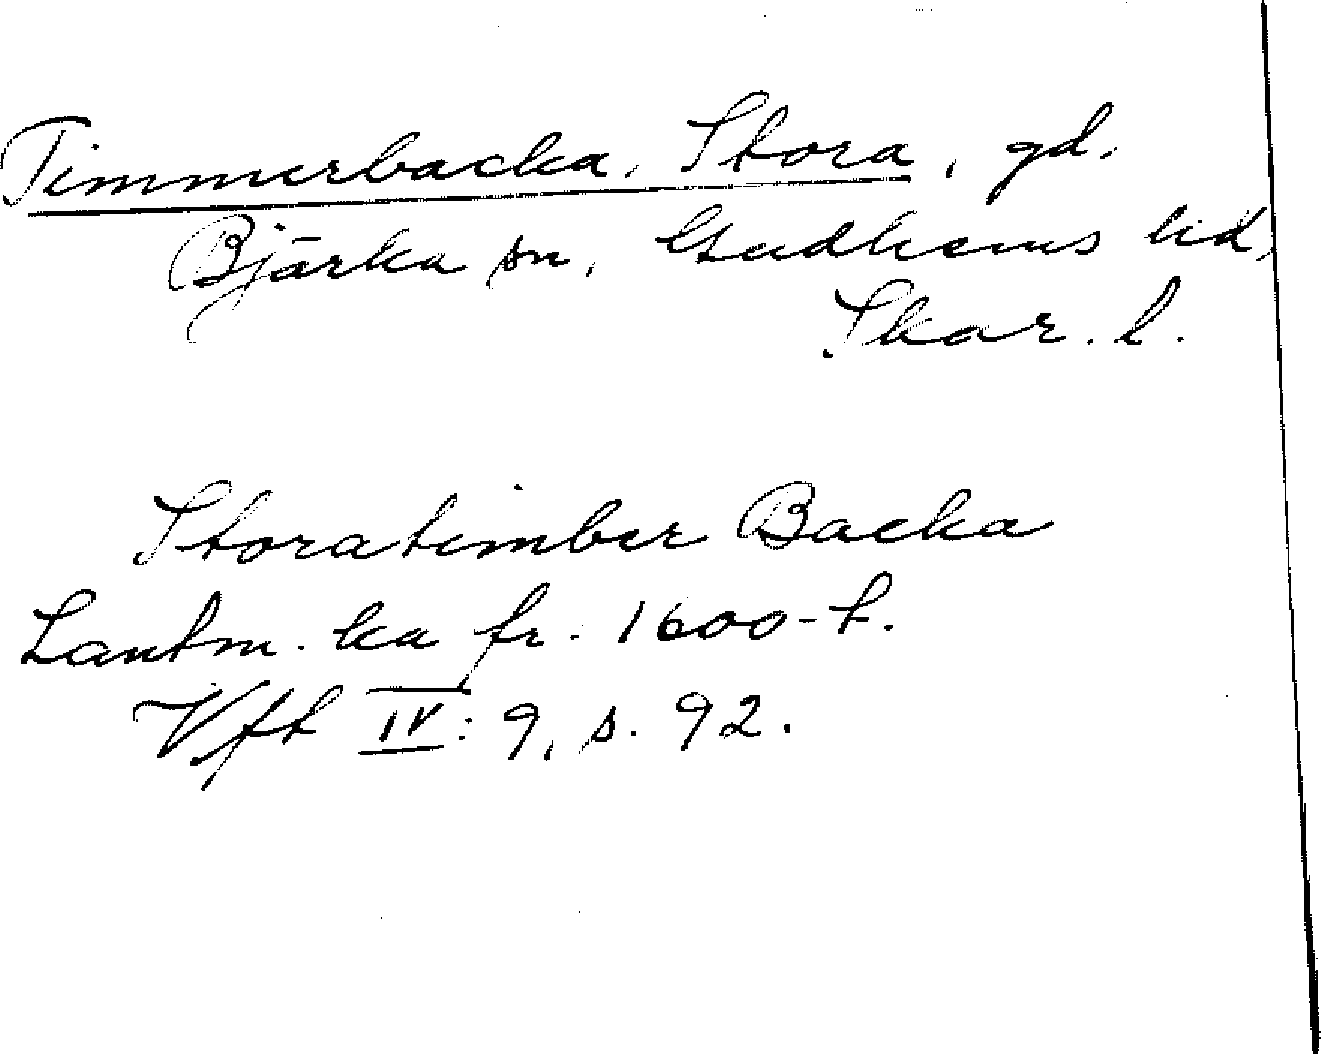 Timmerbacka, Stora, gd.
Bjärka sn, Gudhems hd,
Skar. l.
Storatimber Backa
Lantm. ka fr. 1600-t.
Vft IV: 9, s. 92.